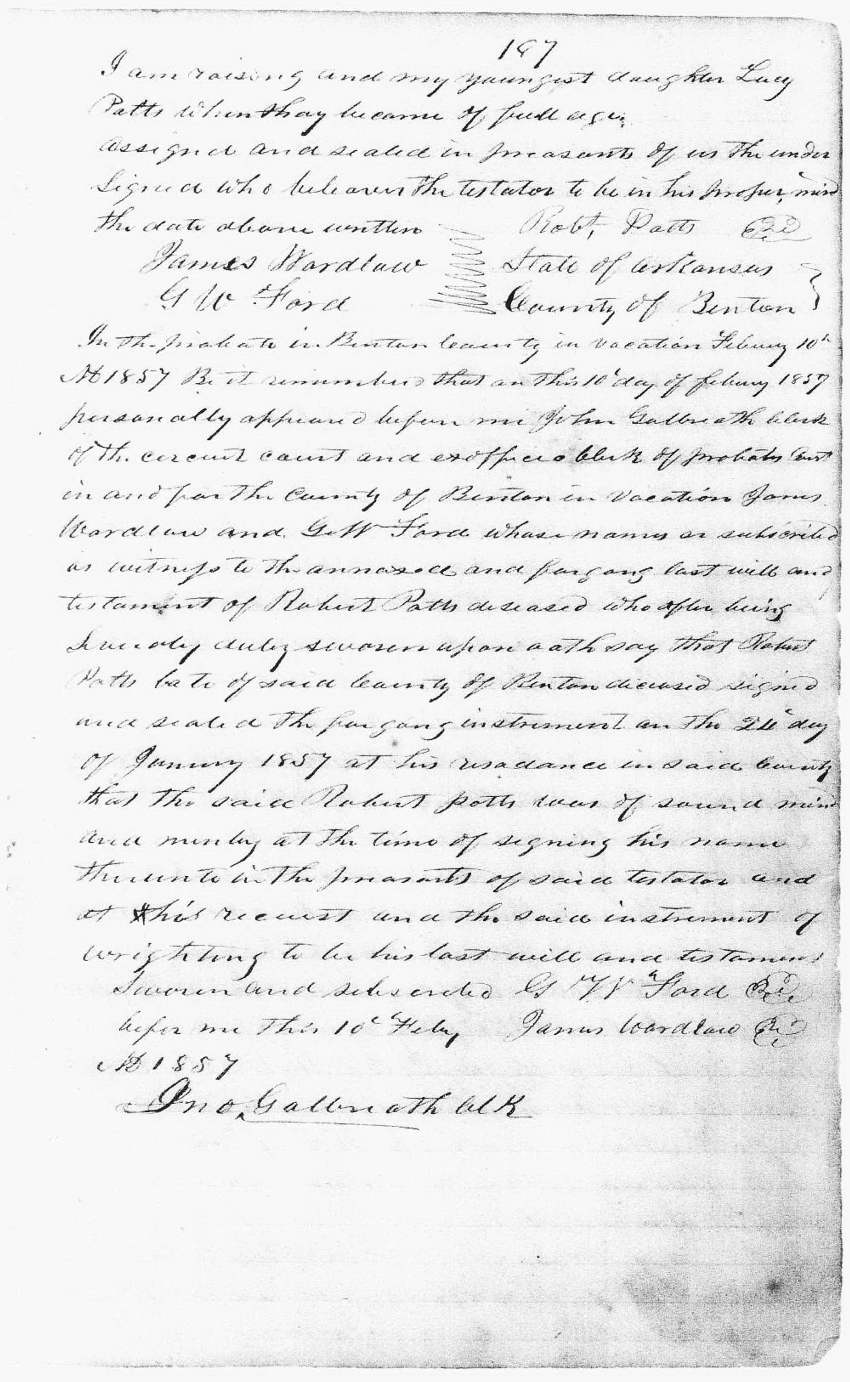 187
I am raising and my youngest daughter Lucy
Potts when thay become of full age.
assigned and sealed in preasants of us the under
Signed who beleaves the testator to be in his proper mind
the date above written Robt, Potts
James Wardlaw State of Arkansas
G Wn Ford County of Benton
In the probate in Benton County in vacation Febuary 10th
AD 1857 Be it remembered that on this 10th day of febury 1857
personally appeared before me John Galbreath clerk
of the circuit court and exofficio clerk of probate Court
in and for the County of Benton in vacation James
Wardlaw and G. Wn Ford whose names ar subscribed
as witness to the annaxed and forgong last will and
testament of Robert Potts deseased who after being
Severaly duley sworen upon oath say that Robert
Potts late of said County of Benton diceased signed
and sealed the forgong instrement on the 24th day
of January 1857 at his resadance in said County
that the said Robert potts was of sound mind
and at the time of signing his name
thereunto in the preasants of said testator and
at his recuest and the said instrement of
wrighting to be his last will and testament
Sworen and subscrebed G Wn Ford
before me this 10th Feby James Wardlaw
AD 1857
Jno, Galbreath Clk